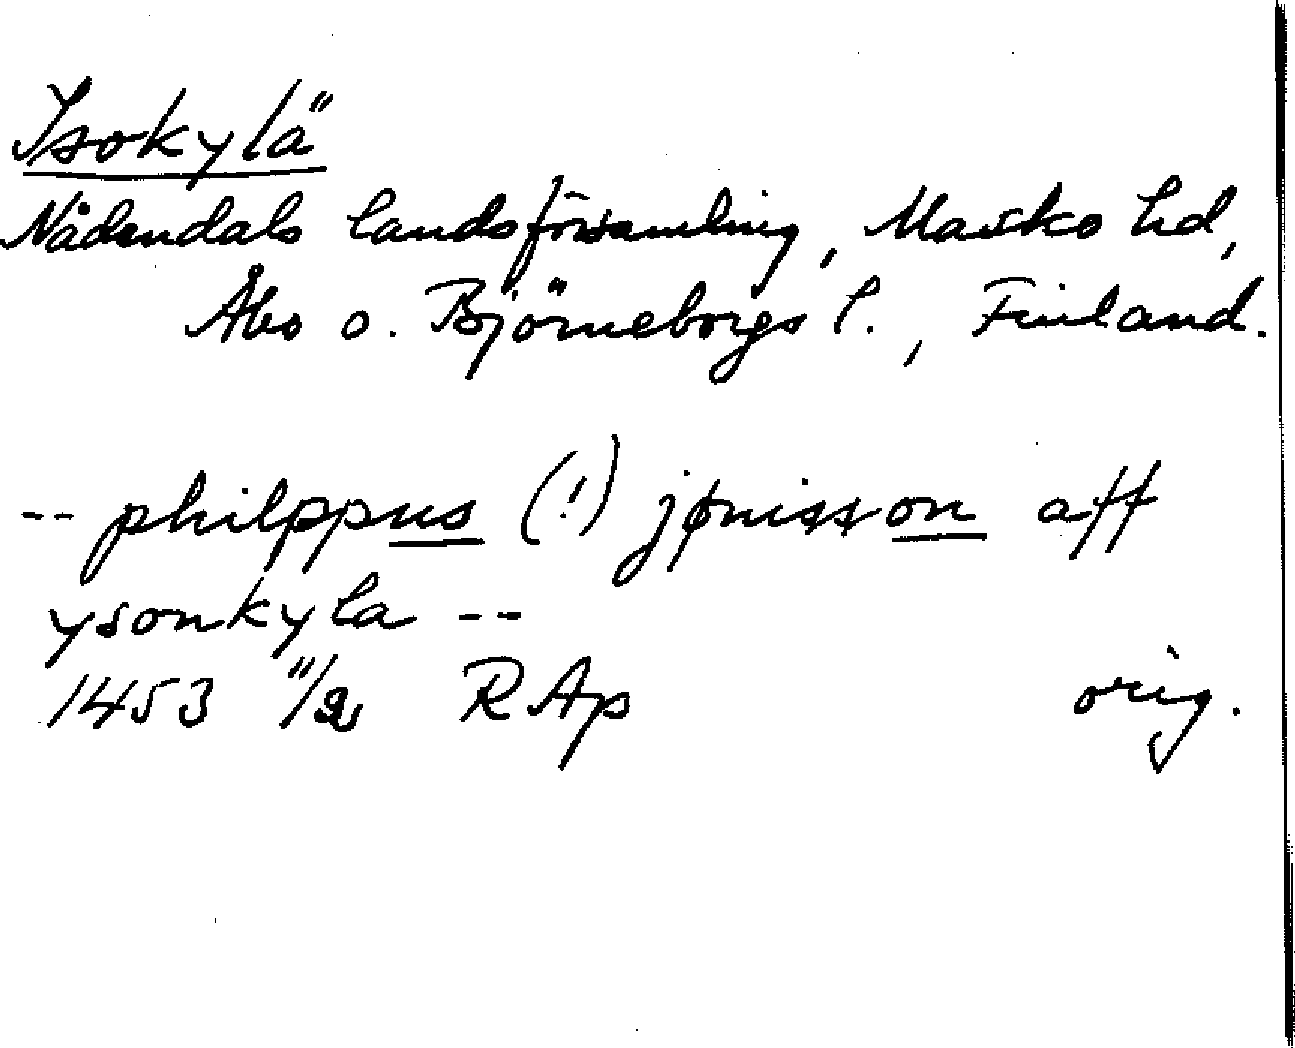 Isokylä
Nådendals landsförsamling, Masko hd,
Åbo o. Björneborgs l., Finland.
-- philppus (!) jønisson aff
ysonkyla --
1453 11/2 RAp orig.